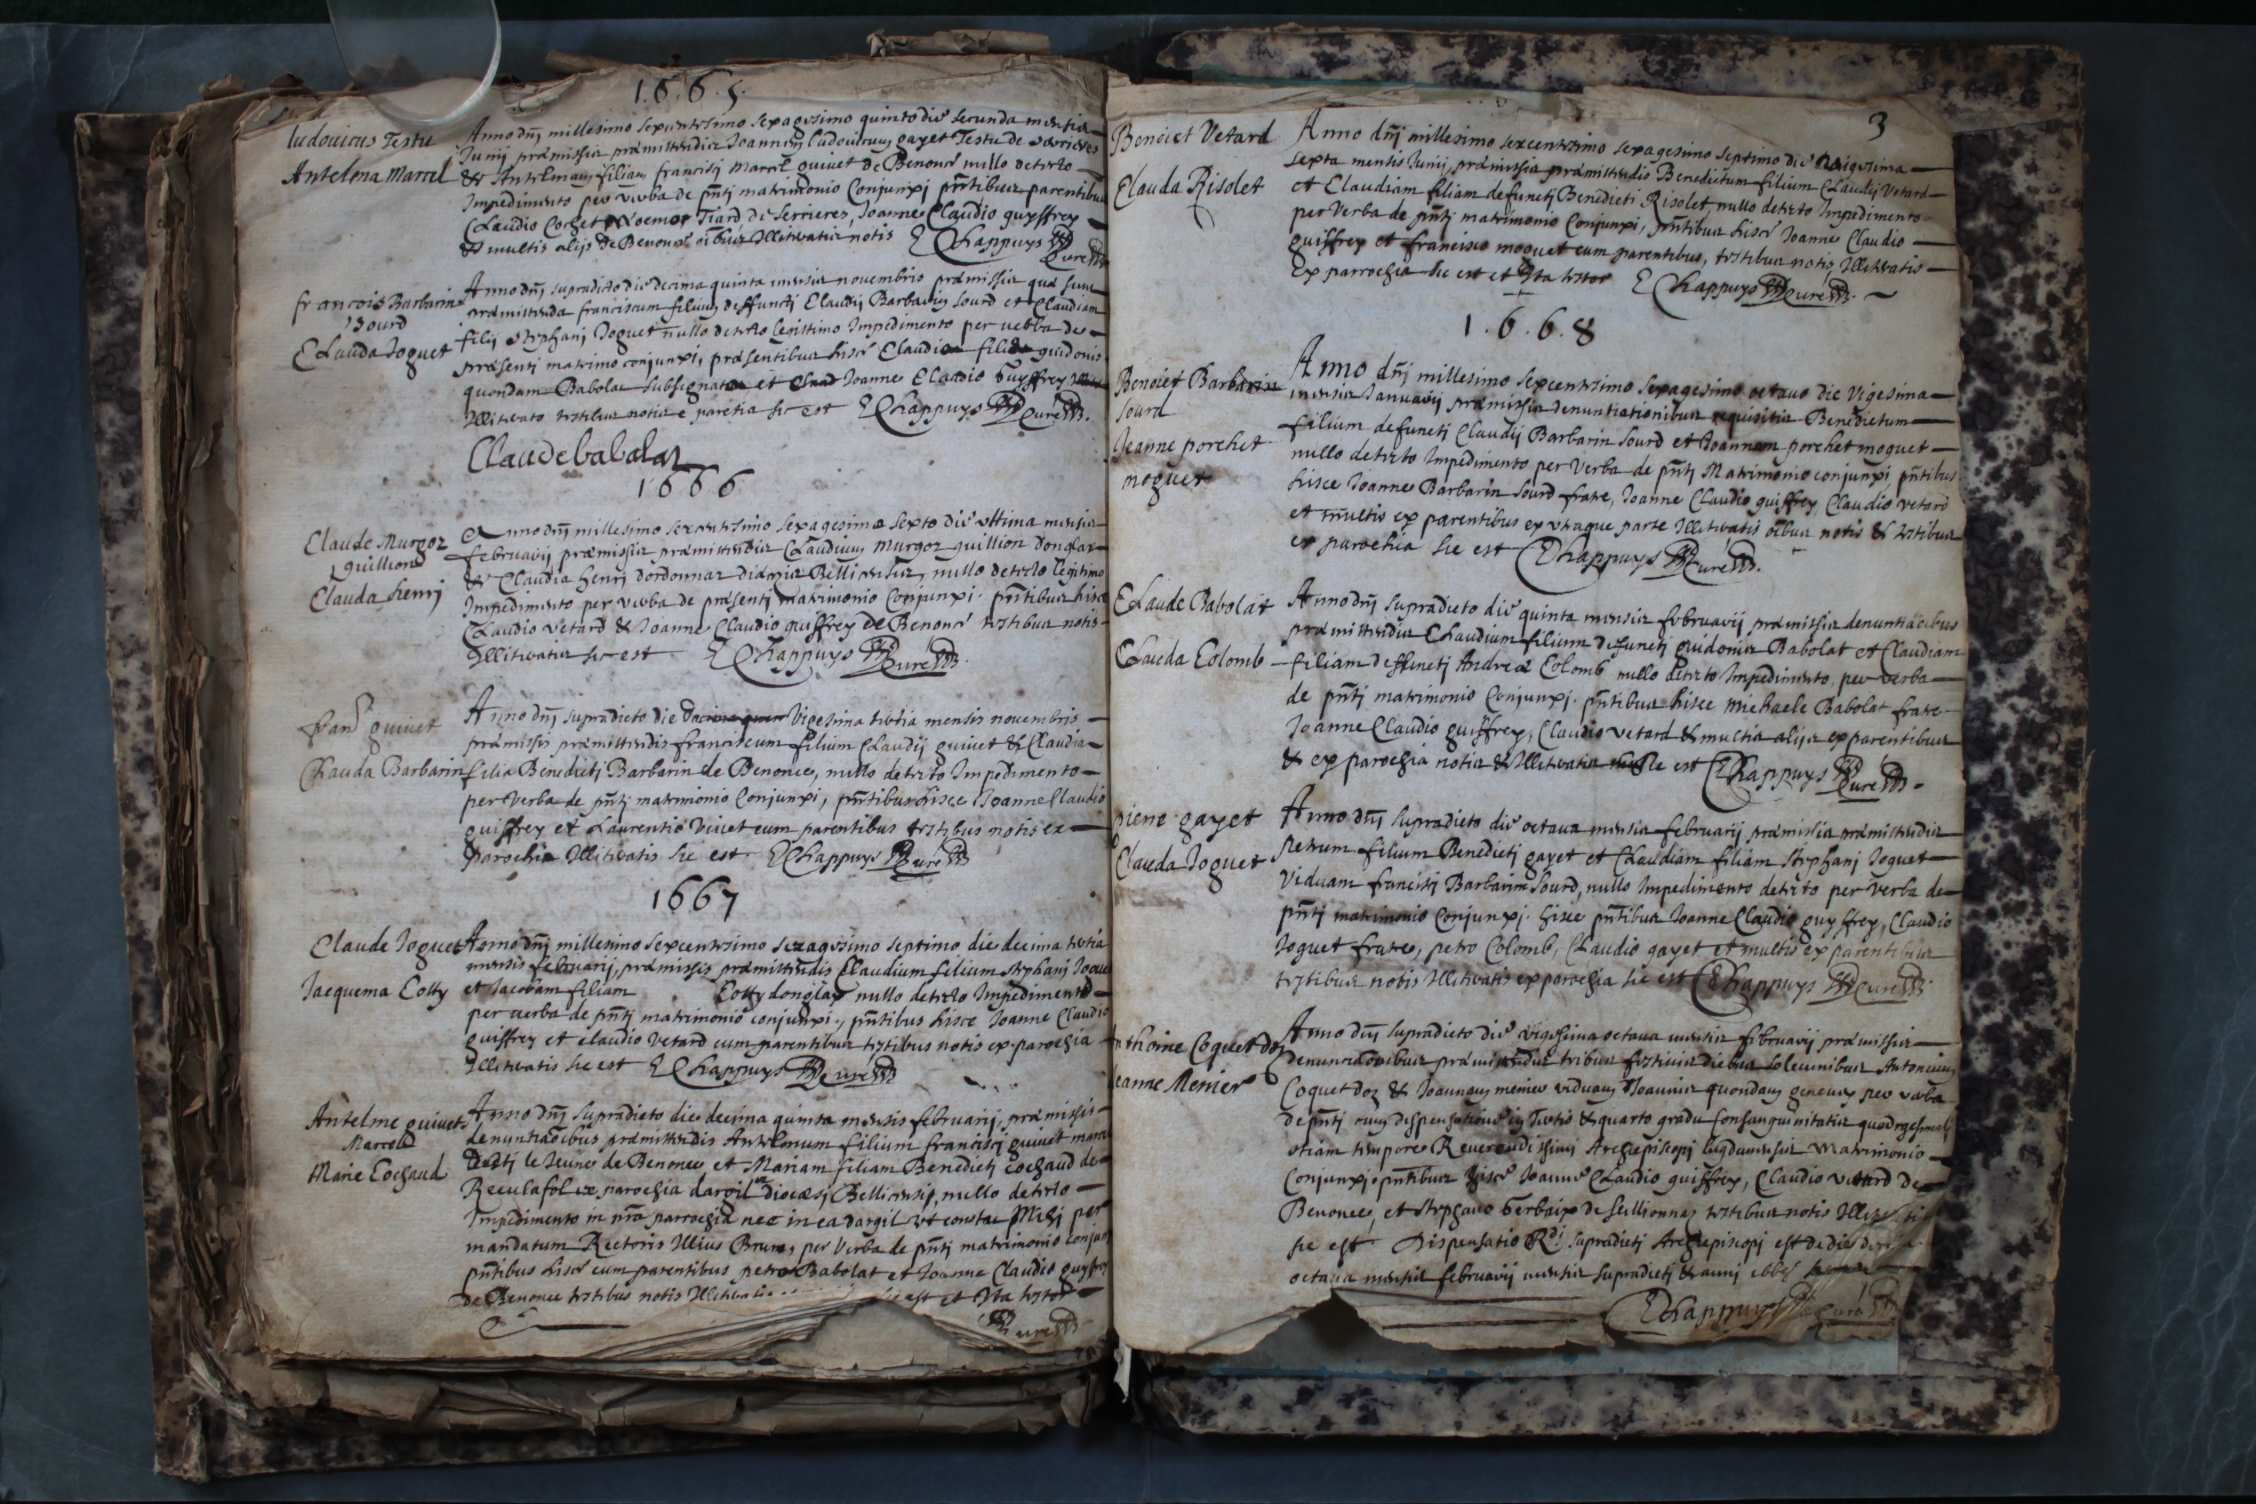 1.6.6.5.
ludovicus Testu
Antelma Marcel
Anno dnj millesimo sexcentesimo sexagesimo quinto die secunda mensis
Junij præmissis præmittendis Joannem ludovicum gayet Testu de
& Antelmam filiam francisci Marcel guivet de Benonce nullo detecto
Impedimento per verba de pñtj matrimonio Conjunxj pñtibus parentibus
Claudio Cochet Tiard de Serrieres, Joanne Claudio guyffrey
& multis alijs de Benonce oibus Illiteratis notis E Chappuys Curé
françois Barbarin
Sourd
Clauda Joguet
Anno dnj supradicto die decima quinta mensis novembris præmissis quæ sunt
præmittenda franciscum filium deffuncti Claudij Barbarin sourd et Claudiam
filij Stephanj Joguet nullo detecto legitimo Impedimento per verba de
præsenti matrimo conjunxi, præsentibus hisce Claudio filio guidonis
quondam Babolat subsignato et Joanne Claudio guyffrey
Illiterato testibus notis e parochia sic est E Chappuys Curé
Claudebabolat
1666
Claude Murgoz
guilliond
Clauda henrj
Anno dnj millesimo sexcentesimo sexagesimo sexto die ultima mensis
februarij præmissis præmittendis Claudium Murgoz guillion donglas
& Claudia henrj dordonnaz diœcesis Bellicensis, nullo detecto legitimo
Impedimento per verba de præsentj matrimonio Conjunxi pñtibus hisce
Claudio vetard & Joanne Claudio guiffrey de Benonce testibus notis
Illiteratis sic est E Chappuys Curé
fran guivet
Clauda Barbarin
Anno dnj supradicto die Vigesima tertia mensis novembris
præmissis præmittendis franciscum filium Claudij guivet & Claudia
filia Benedictj Barbarin de Benonce, nullo detecto Impedimento
per verba de pñtj matrimonio Conjunxi, pñtibus hisce Joanne Claudio
guiffrey et Laurentio Vivet cum parentibus testibus notis ex
parochia Illiteratis sic est E Chappuys Curé
1667
Claude Joguet
Jacquema Cotty
Anno dnj millesimo sexcentesimo sexagesimo septimo die decima tertia
mensis februarij, præmissis præmittendis Claudium filium Stephanj Joguet
et Jacobam filiam Cotty donglas nullo detecto Impedimento
per verba de pñtj matrimonio conjunxi, pñtibus hisce Joanne Claudio
guiffrey et claudio vetard cum parentibus testibus notis ex parochia
Illiteratis sic est E Chappuys Curé
Antelme guivet
Marcel
Marie Cochaud
Anno dnj supradicto die decima quinta mensis februarij præmissis
denuntiaoibus præmittendis Antelmum filium franciscj guivet
le Jeune de Benonce et Mariam filiam Benedictj Cochaud de
Reculafol ex parochia dargil diocæsi Bellicensis, nullo detecto
Impedimento in nra parrochia nec in ea dargil ut constat Mihi per
mandatum Rectoris Illius Brun, per verba de pñtj matrimonio conjunxi
pñtibus hisce cum parentibus petro Babolat et Joanne Claudio guyffrey
de Benonce testibus notis Illiteratis est et Ita testor
Curé
3
Benoict Vetard
Clauda Risolet
Anno dnj millesimo sexcentesimo sexagesimo septimo die Vigesima
sexta mensis Junij, præmissis præmittendis Benedictum filium Claudij Vetard
et Claudiam filiam defunctj Benedicti Risolet, nullo detecto Impedimento
per verba de pñtj matrimonio Conjunxi, pñtibus hisce Joanne Claudio
guiffrey et francisco moguet cum parentibus, testibus notis Illiteratis
Ex parrochia sic est et Ita testor E Chappuys Curé
1.6.6.8
Benoict Barbarin
Sourd
Jeanne porchet
moguet
Anno dnj millesimo sexcentesimo sexagesimo octavo die Vigesima
mensis Januarij præmissis denuntiationibus requisitis Benedictum
filium defunctj Claudij Barbarin sourd et Joannam porchet moguet
nullo detecto Impedimento per verba de pñtj Matrimonio conjunxi pñtibus
hisce Joanne Barbarin sourd fratre, Joanne Claudio guiffrey Claudio vetard
et multis ex parentibus ex utraque parte Illiteratis oibus notis & testibus
ex parochia sic est E Chappuys Curé
Claude Babolat
Clauda Colomb
Anno dnj supradicto die quinta mensis februarij præmissis denuntiaoibus
præmittendis Claudium filium defuncti guidonis Babolat et Claudiam
filiam deffuncti Andreæ Colomb nullo detecto Impedimento, per verba
de pñtj matrimonio Conjunxj pñtibus hisce michaele Babolat fratre
Joanne Claudio guiffrey, Claudio vetard & multis alijs ex parentibus
& ex parochia notis & Illiteratis sic est E Chappuys Curé
pierre gayet
Clauda Joguet
Anno dnj supradicto die octava mensis februarij præmissis præmittendis
petrum filium Benedicti gayet et Claudiam filiam Stephanj Joguet
Viduam francisci Barbarin sourd, nullo Impedimento detecto per verba de
pñtj matrimonio Conjunxj hisce pñtibus Joanne Claudio guyffrey, Claudio
Joguet fratre, petro Colomb, Claudio gayet et multis ex parentibus
testibus notis Illiteratis ex parochia sic est E Chappuys Curé
Anthoine Coquet doz
Jeanne Menier
Anno dnj supradicto die vigesima octava mensis februarij præmissis
denuntiaonibus præmittendis tribus festivis diebus solemnibus Antonium
Coquet doz & Joannam menier viduam Joannis quondam per verba
de pñtj cum dispensatione in Tertio & quarto gradu Consanguinitatis quadragesimalj
etiam tempore Reverendissimi Archiepiscopj lugdunensis Matrimonio
Conjunxj pñtibus hisce Joanne Claudio guiffrey, Claudio vetard de
Benonce, et Stephano Gerbaix de Seillionnaz testibus notis
sic est Dispensatio Rdi supradicti Archiepiscopi est de die
octava mensis februarij mensis supradicti & anni
E Chappuys Curé